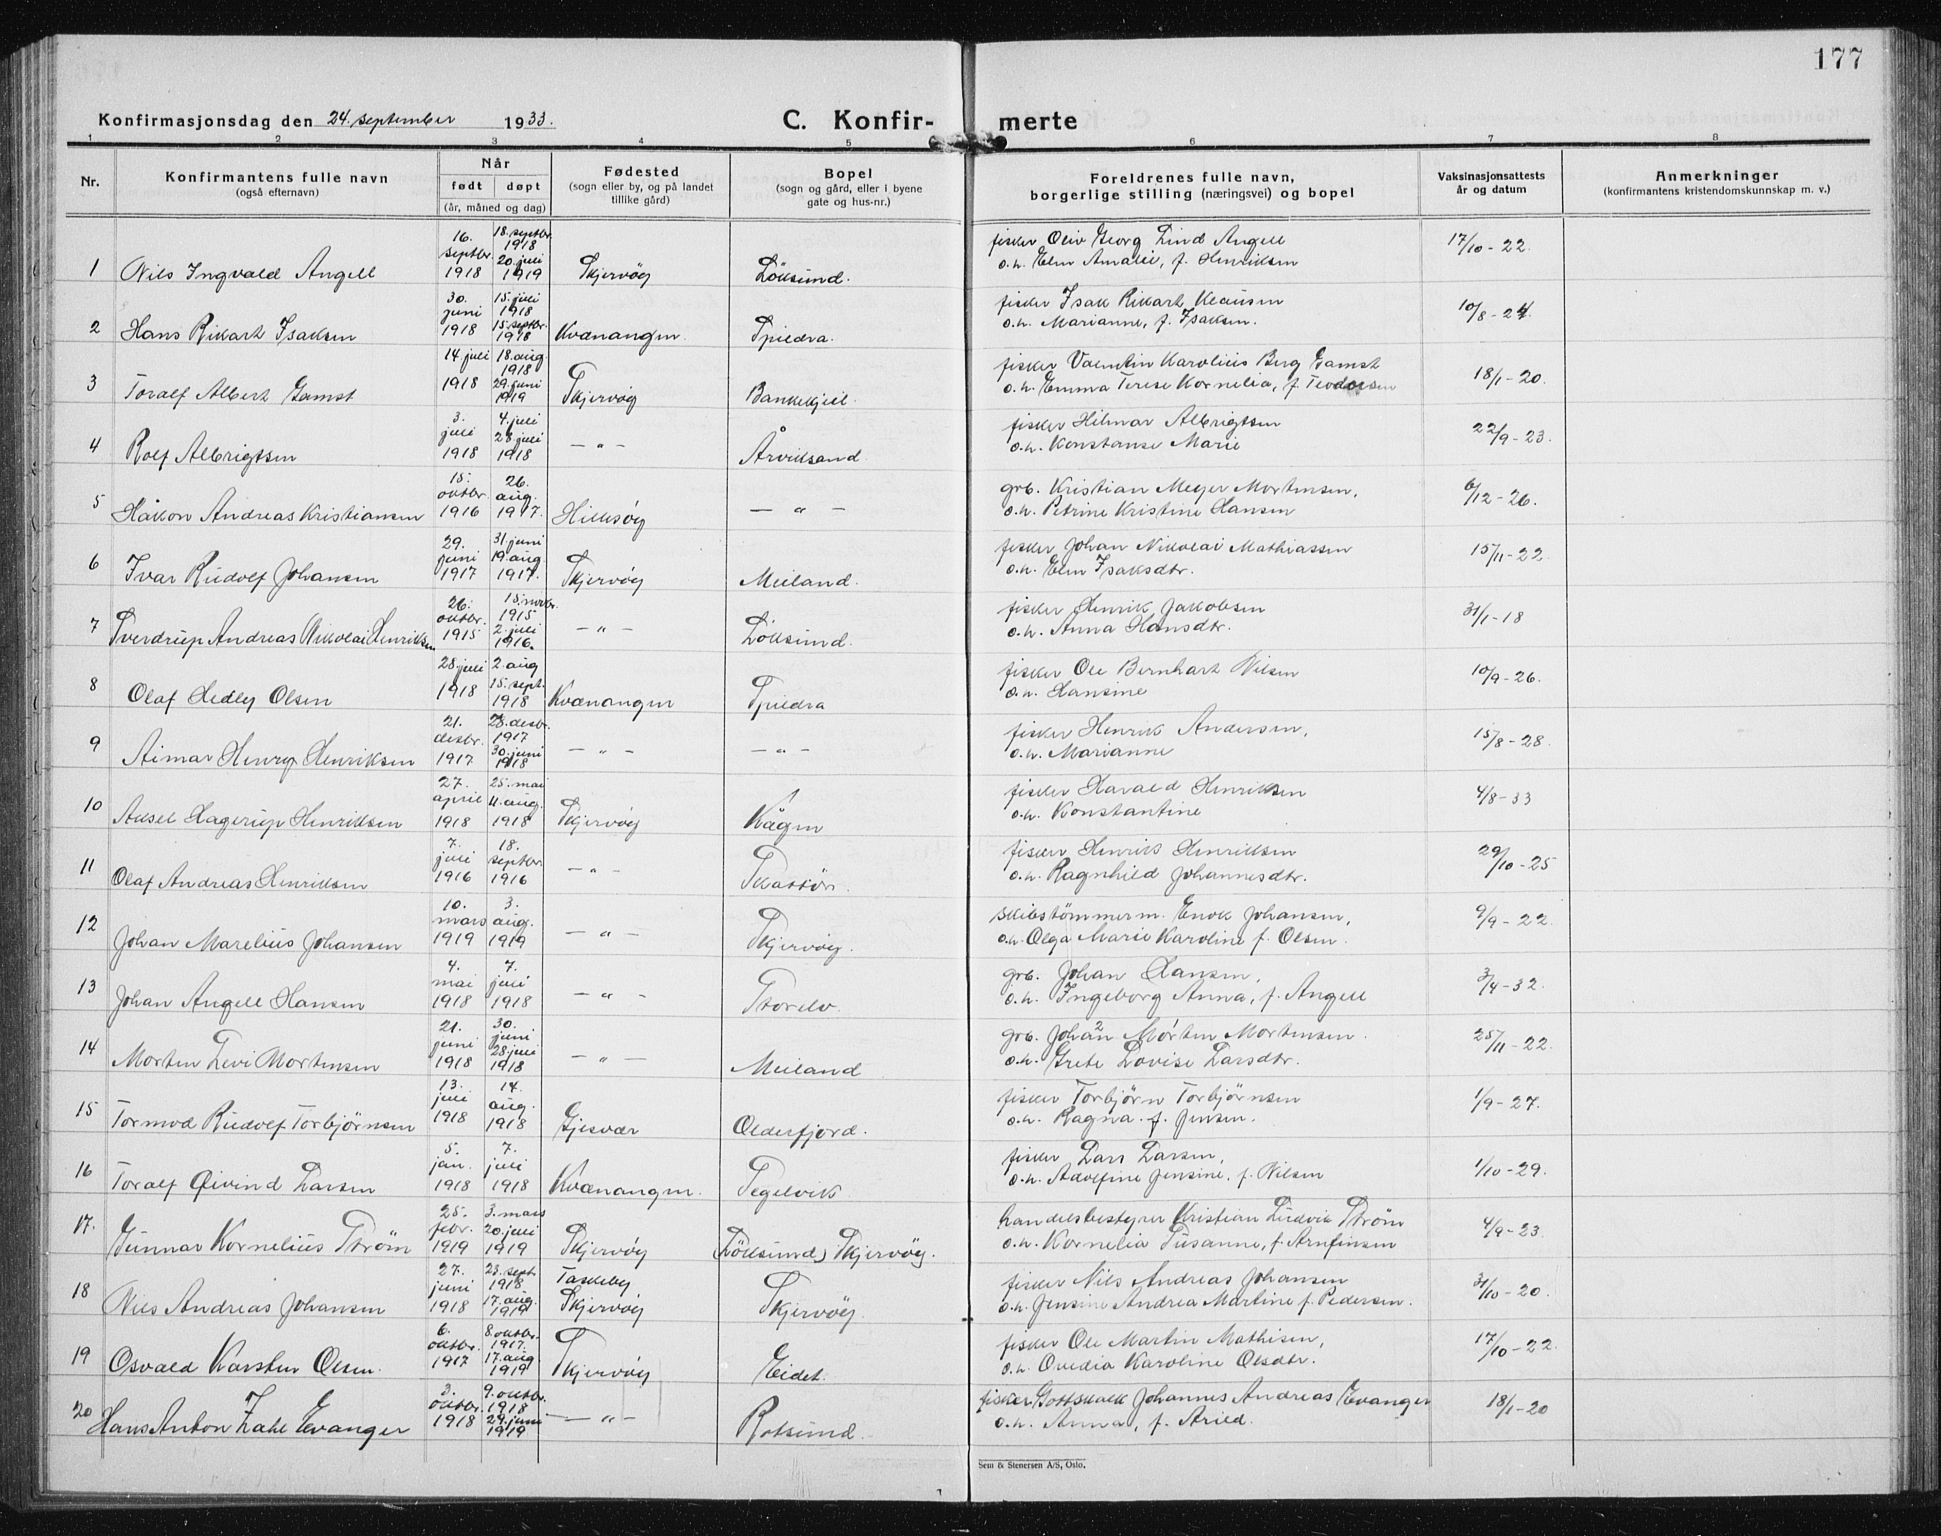 177
Konfirmasjonsdag den 24. september 1933.
C. Konfir-
merte
1 2 3 4 5 6 7 8
Nr.
Konfirmantens fulle navn
(også efternavn)
Når
født døpt
(år, måned og dag)
Fødested
(sogn eller by, og på landet
tillike gård)
Bopel
(sogn og gård, eller i byene
gate og hus-nr.)
Foreldrenes fulle navn,
borgerlige stilling (næringsvei) og bopel
Vaksinasjonsattests
år og datum
Anmerkninger
(konfirmantens kristendomskunnskap m. v.)
1 Nils Ingvald Angell 16. septbr. 1918 18. septbr. 1918 20. juli 1919 Skjervøy Løksund. fisker Oliv Georg Lind Angell 17/10-22
o.h. Elen Amalie, f. Henriksen
2 Hans Rikart Isaksen 30. juni 1918 15. juli 1918 15. septbr. 1918 Kvænangen. Spildra. fisker Isak Rikart Klausen 10/8-24
o.h. Marianne, f. Isaksen.
3 Toralf Albert Gamst 14 juli 1918 18. aug. 1918 29. juni 1919 Skjervøy Bankekjeil. fisker Valentin Karolius Berg Gamst 18/1-20.
o.h. Emma Terese Kornelia, f. Teodorsen
4 Rolf Albrigtsen 3. juli 1918 4. juli 28. juli 1918 – " – Årviksand. fisker Hilmar Albrigtsen 22/9-23.
o.h. Konstanse Marie
5 Håkon Andreas Kristiansen 15. oktbr. 1916 26. aug. 1917. Hillesøy – " – grb. Kristian Meyer Mortensen, 6/12-26.
o.h. Petrine Kristine Hansen
6 Ivar Rudolf Johansen 29. juni 1917 31. juni 19. aug. 1917. Skjervøy Meiland. fisker Johan Nikolai Mathiassen 15/11-22.
o.h. Elen Isaksdtr.
7 Sverdrup Andreas Nikolai Henriksen 26. oktbr. 1915 15. novbr. 1915 2. juli 1916. – " – Løksund. fisker Henrik Jakobsen 31/1-18
o.h. Anna Hansdtr.
8 Olaf Hedley Olsen 28 juli 1918 2. aug 15. sept. 1918 Kvænangen Spildra fisker Ole Bernhart Nilsen 10/9-26.
o.h. Hansine
9 Aimar Henry Henriksen 21. desbr. 1917 28. desbr. 1917 30. juni 1918 – " – – " – fisker Henrik Andersen, 15/8-28.
o.h. Marianne
10 Aksel Hagerup Henriksen 27. april 1918 25. mai 11. aug. 1918 Skjervøy Kågen fisker Harald Henriksen 4/8-33
o.h. Konstantine
11 Olaf Andreas Henriksen 7. juli 1916 18. septbr. 1916 – " – Skattør. fisker Henrik Henriksen 29/10-25
o.h. Ragnhild Johannesdtr.
12 Johan Marelius Johansen 10. mars 1919 3. aug. 1919 – " – Skjervøy. skibstømmerm. Enok Johansen, 9/9-22.
o.h. Olga Marie Karoline f. Olsen.
13 Johan Angell Hansen 4. mai 1918 7. juli 1918 – " – Storelv. grb. Johan Hansen, 3/4-32.
o.h. Ingeborg Anna, f. Angell
14 Morten Levi Mortensen 21. juni 1918 30. juni 28. juli 1918 – " – Meiland grb. Johan Morten Mortensen. 25/11-22.
o.h. Grete Lovise Larsdtr.
15 Tormod Rudolf Torbjørnsen 13. juli 1918 14. aug. 1918 Gjesvær Olderfjord. fisker Torbjørn Torbjørnsen 1/9-27.
o.h. Ragna. f. Jensen.
16 Toralf Øivind Larsen 5. jan. 1918 7. juli 1918 Kvænangen. Segelvik. fisker Lars Larsen, 1/10-29.
o.h. Adolfine Jensine, f. Nilsen
17. Gunnar Kornelius Strøm 25. febr. 1919 3. mars 20. juli 1919 Skjervøy (Løksund) Skjervøy. handelsbestyrer Kristian Ludvik Strøm 4/9-23.
o.h. Kornelia Susanne, f. Arnfinsen
18 Nils Andreas Johansen 27. juni 1918 23. sept. 1918 17. aug. 1919 Taskeby Skjervøy Skjervøy. fisker Nils Andreas Johansen 31/10-20.
o.h. Jensine Andrea Martine f. Pedersen.
19 Osvald Karsten Olsen. 6. oktbr. 1917 8. oktbr. 1917. 17. aug. 1919 Skjervøy Eidet. fisker Ole Martin Mathisen, 17/10-22.
o.h. Ovedia Karoline Olsdtr.
20 Hans Anton Zahl Evanger 3. oktbr. 1918 9. oktbr. 1918 29. juni 1919 – " – Rotsund. fisker Gottskalk Johannes Andreas Evanger 18/1-20
o.h. Anna, f. Arild.
Sem & Stenersen A/S, Oslo.